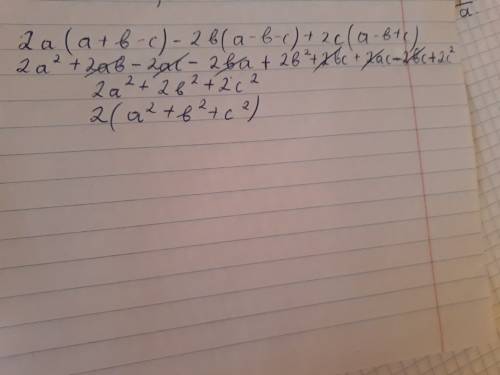 2a(a+b-c)-2b(a-b-c)+2c(a-b+c)
2a²+2ab-2ac-2ba+2b²+2bc+2ac-2bc+2c²
2a²+2b²+2c²
2(a²+b²+c²)
a